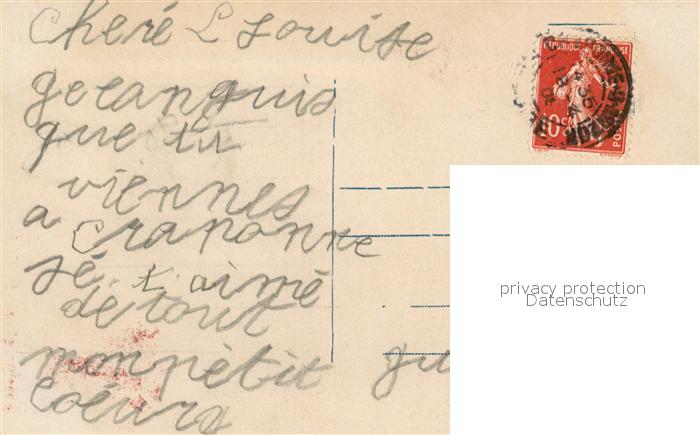 Cheré L Louise
gelanguis
que tu
viennes
a Craponne
sé t'aimé
de tout
mon pètit gu
Coéurs
REPUBLIQUE FRANÇAISE
10c POSTES
privacy protection
Datenschutz